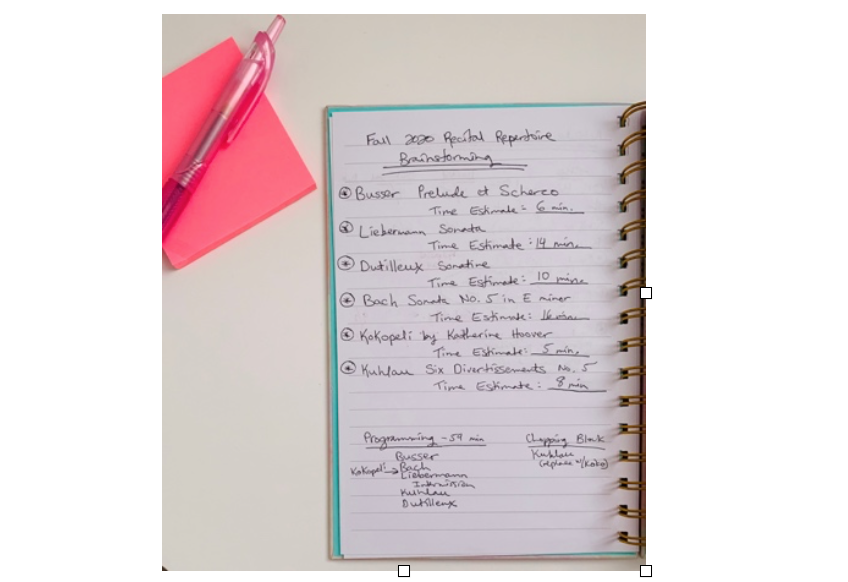 Fall 2020 Recital Repertoire
Brainstorming
Busser Prelude et Scherzo
Time Estimate: 6 min.
Liebermann Sonata
Time Estimate: 14 min.
Dutilleux Sonatine
Time Estimate: 10 min.
Bach Sonata No. 5 in E minor
Time Estimate: 16 min.
Kokopeli by Katherine Hoover
Time Estimate: 5 min.
Kuhlau Six Divertissements No. 5
Time Estimate: 8 min
Programming - 59 min
Busser
Kokopeli → Bach
Liebermann
Intermission
Kuhlau
Dutilleux
Chopping Block
Kuhlau
(replace w/Koko)